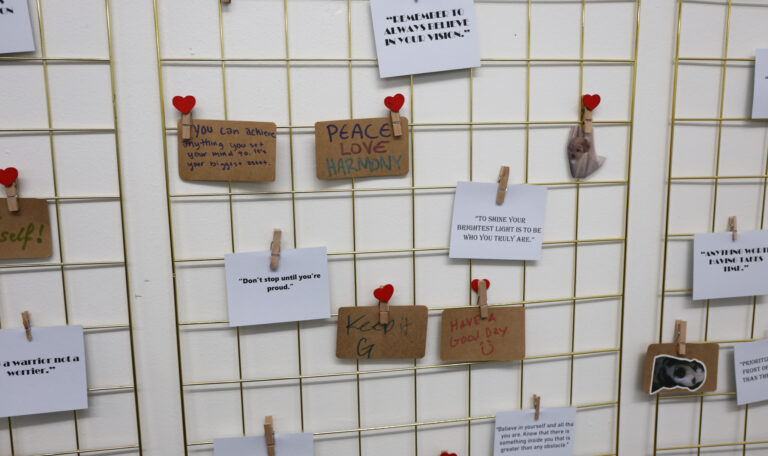 "REMEMBER TO
ALWAYS BELIEVE
IN YOUR VISION."
you can achieve
anything you set
your mind to. It's
your biggest asset.
PEACE
LOVE
HARMONY
self!
"TO SHINE YOUR
BRIGHTEST LIGHT IS TO BE
WHO YOU TRULY ARE."
"Don't stop until you're
proud."
"ANYTHING WORTH
HAVING TAKES
TIME."
Keep it
G
HAVE A
GOOD DAY
a warrior not a
worrier."
"PRIORITIZ
FROST OF
THAN THE
"Believe in yourself and all tha
you are. Know that there is
something inside you that is
greater than any obstacle."